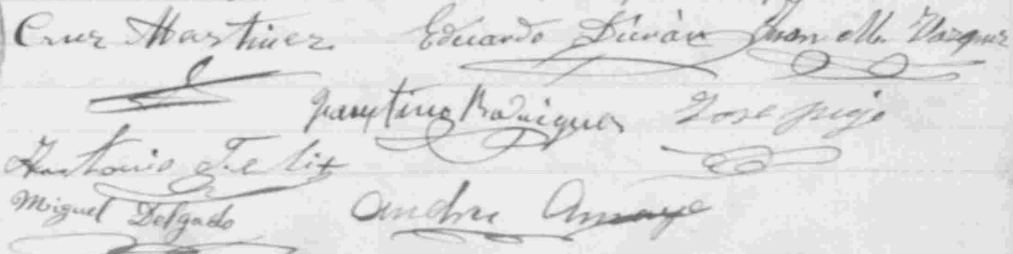 Cruz Martinez Eduardo Durán Juan M. Vazquez
Faustino Rodriguez José
Antonio Felix
Miguel Delgado Andres Amaya